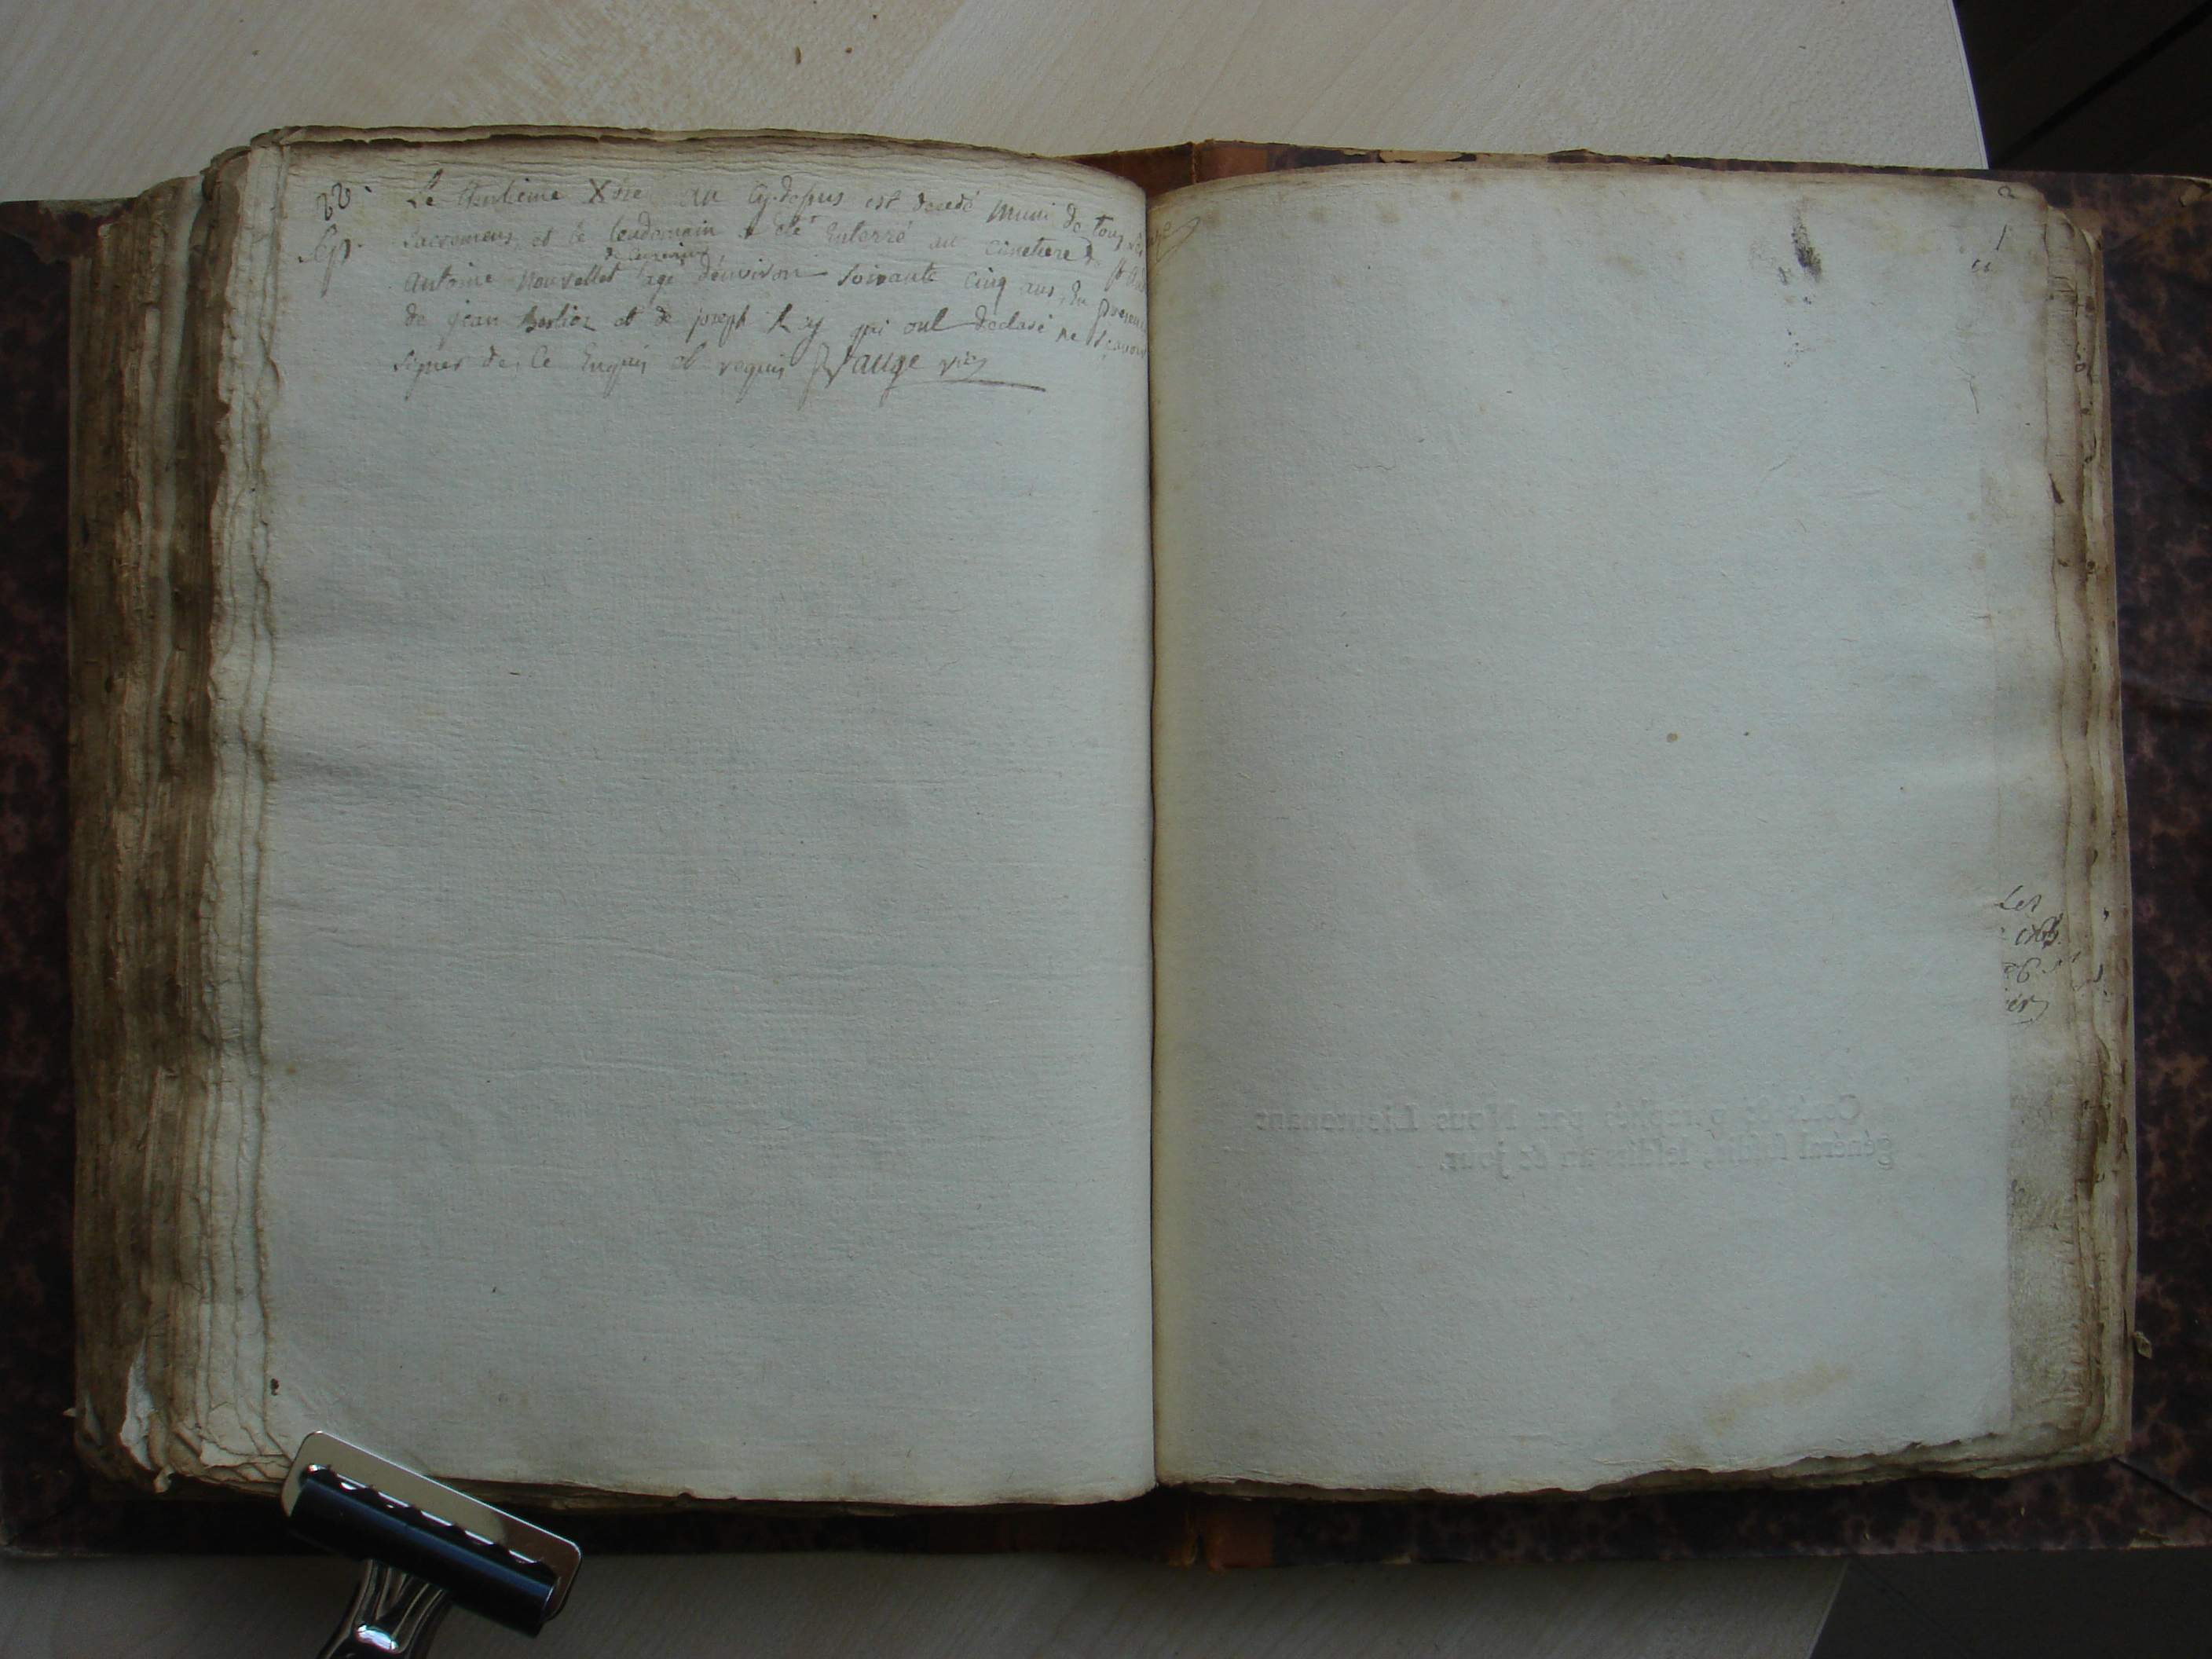 22.
Sep.
Le trentieme Xbre an cy-dessus est decedé muni de tous
sacremens, et le lendemain a été enterré au cimetiere de St
Antoine Nouvellet agé d'environ soixante cinq ans, en presence
de jean Berlioz et de joseph Rey qui ont declaré ne sçavoir
signer de ce enquis et requis Vauge vic
Cotté & paraphé par Nous Lieutenant
général susdit, lesdits an & jour.